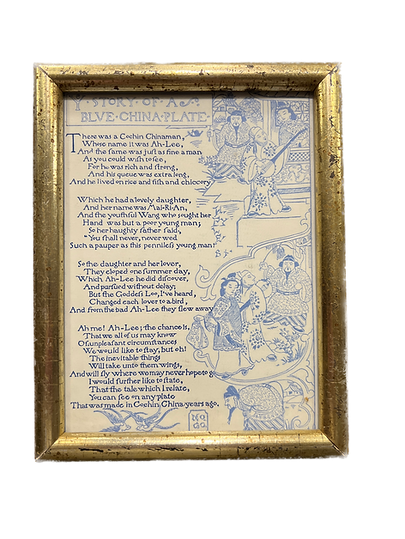 Y STORY OF A
BLVE CHINA PLATE
There was a Cochin Chinaman,
Whose name it was Ah-Lee,
And the same was just as fine a man
As you could wish to see,
For he was rich and strong,
And his queue was extra long,
And he lived on rice and fish and chiccory
Which he had a lovely daughter,
And her name was Mai-Ri-An,
And the youthful Wang who sought her
Hand was but a poor young man;
So her haughty father said,
"You shall never, never wed
Such a pauper as this penniless young man!
So the daughter and her lover,
They eloped one summer day,
Which Ah-Lee he did discover,
And pursued without delay;
But the Goddess Loo, I've heard,
Changed each lover to a bird,
And from the bad Ah-Lee they flew away
Ah me! Ah-Lee; the chance is,
That we all of us may know
Of unpleasant circumstances
We would like to stay, but oh!
The inevitable things
Will take unto them wings,
And will fly where we may never hope to go
I would further like to state,
That the tale which I relate,
You can see on any plate
That was made in Cochin China years ago.